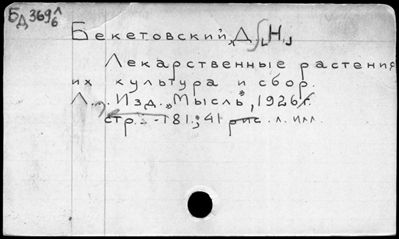 Бд 369 л/6
Бекетовский, Д. [Н.]
Лекарственные растения
их культура и сбор.
Л., Изд. „Мысль", 1926 г.
стр. -181; 4 л. илл.